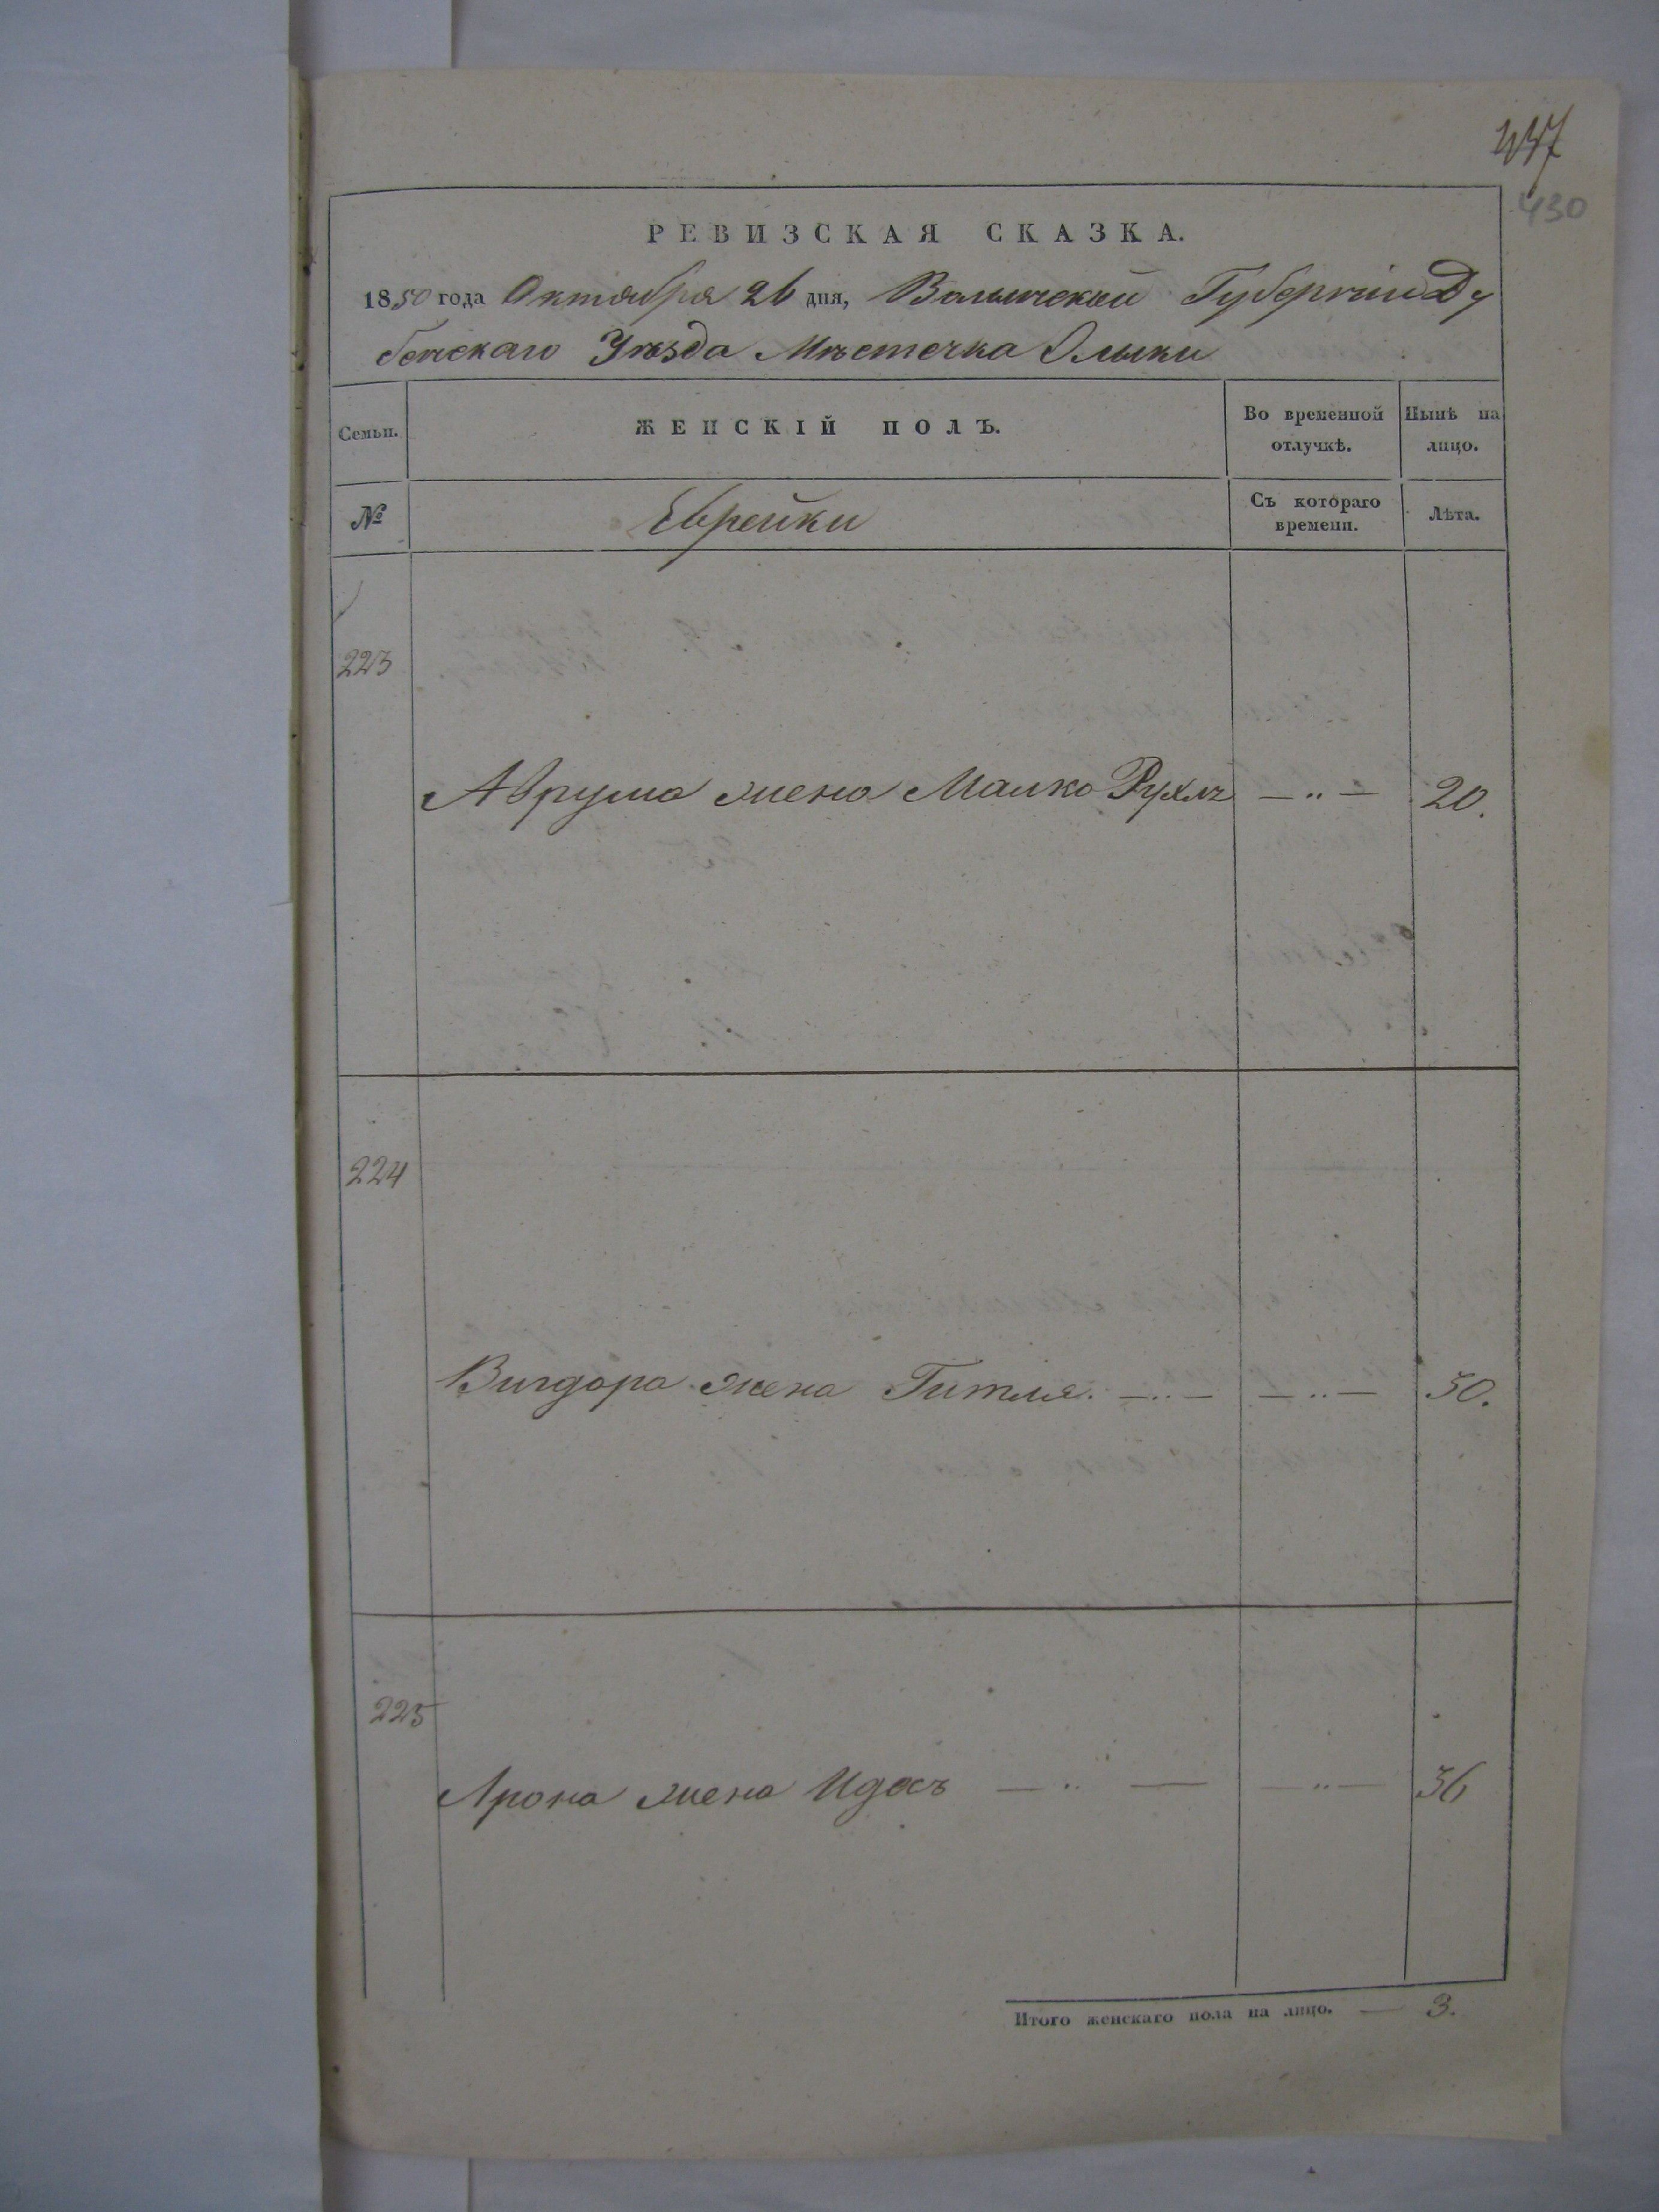 447
430
РЕВИЗСКАЯ СКАЗКА.
1850 года Октября 26 дня, Волынской Губерніи Ду
бенскаго Уѣзда Мѣстечка Олыки
Семьи.
ЖЕНСКІЙ ПОЛЪ.
Во временной отлучкѣ.
Нынѣ на лицо.
№
Еврейки
Съ котораго времени.
Лѣта.
223
Аврума жена Малка Рухля —„— 20.
224
Вигдора жена Гитля. —„— —„— 50.
225
Арона жена Идесъ —„— —„— 36
Итого женскаго пола на лицо. — 3.